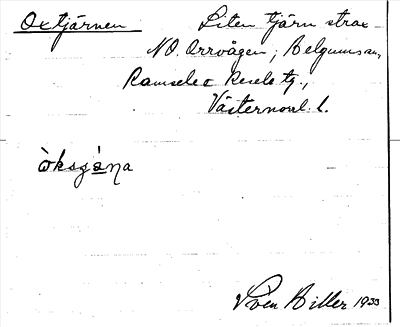 Oxtjärnen Liten tjärn strax
NO. Orrvågen; Helgums sn,
Ramsele o Resele tg.,
Västernorrl. l.
òksgä̀na
Sven Hiller 1933